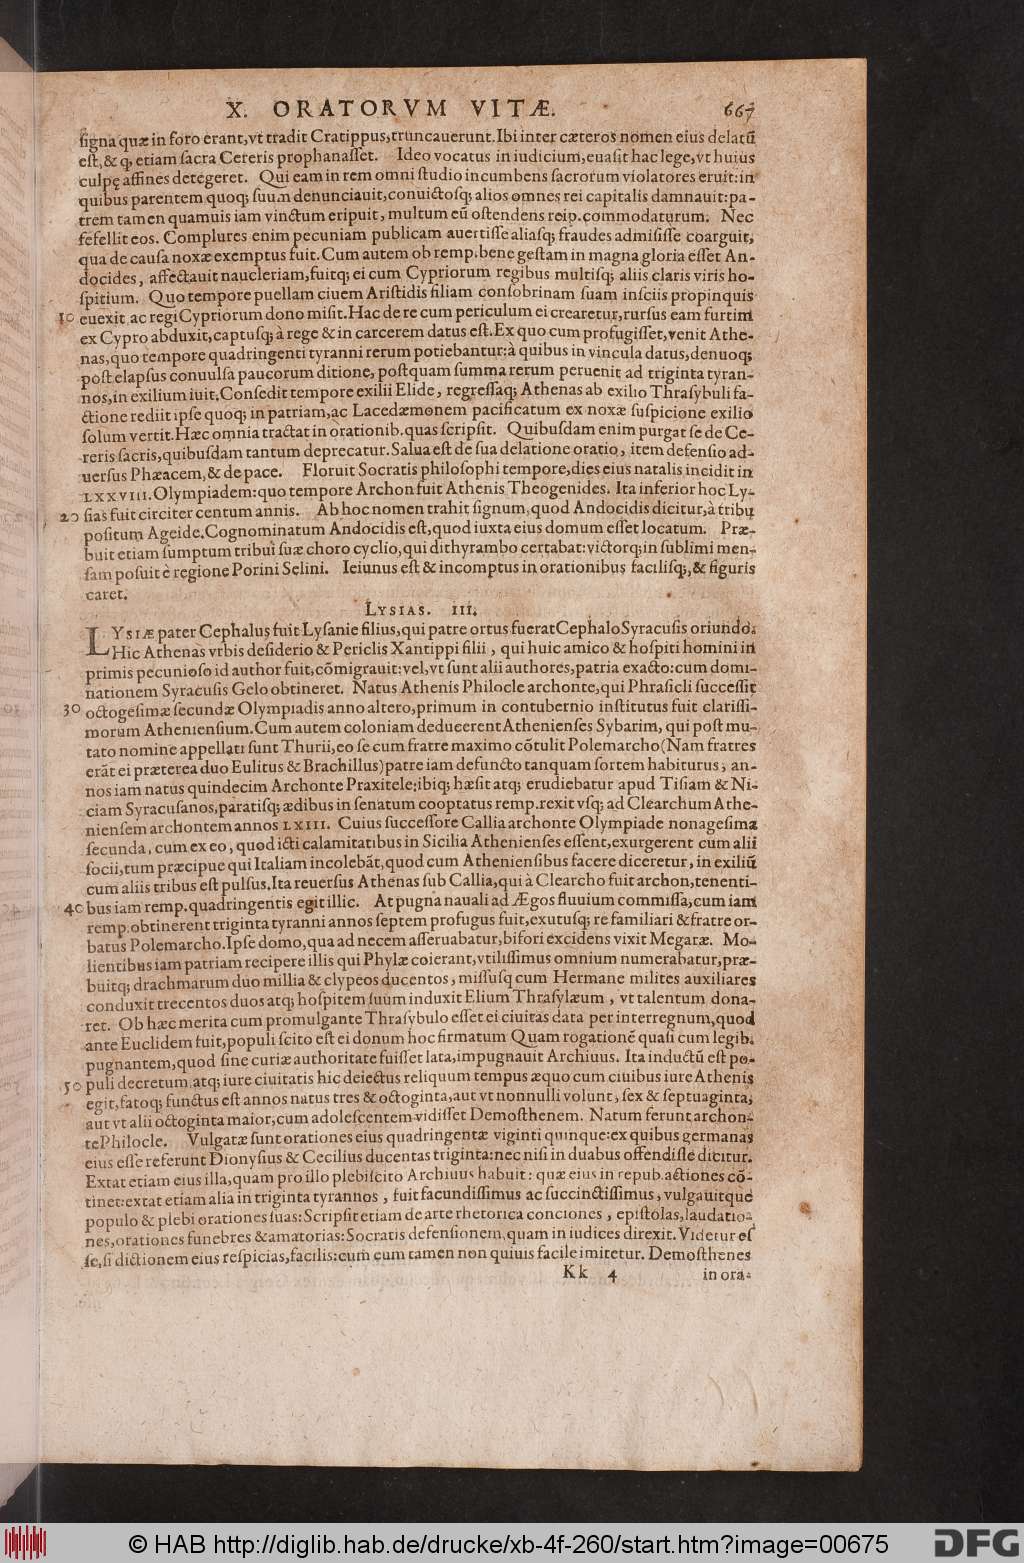 X. ORATORVM VITÆ. 667
ſigna quæ in foro erant,vt tradit Cratippus,truncauerunt.Ibi inter cæteros nomen eius delatũ
eſt,& ꝙ etiam ſacra Cereris prophanaſſet. Ideo vocatus in iudicium,euaſit hac lege,vt huius
culpę affines detegeret. Qui eam in rem omni ſtudio incumbens ſacrorum violatores eruit:in
quibus parentem quoq; ſuum denunciauit,conuictosq; alios omnes rei capitalis damnauit:pa-
trem tamen quamuis iam vinctum eripuit, multum eũ oſtendens reip.commodaturum. Nec
fefellit eos. Complures enim pecuniam publicam auertiſſe aliasq; fraudes admiſiſſe coarguit,
qua de cauſa noxæ exemptus fuit.Cum autem ob remp.bene geſtam in magna gloria eſſet An-
docides, affectauit naucleriam,fuitq; ei cum Cypriorum regibus multisq; aliis claris viris ho-
ſpitium. Quo tempore puellam ciuem Ariſtidis filiam conſobrinam ſuam inſciis propinquis
10 euexit ac regi Cypriorum dono miſit.Hac de re cum periculum ei crearetur,rurſus eam furtim
ex Cypro abduxit,captusq; à rege & in carcerem datus eſt.Ex quo cum profugiſſet,venit Athe-
nas,quo tempore quadringenti tyranni rerum potiebantur:à quibus in vincula datus,denuoq;
poſt elapſus conuulſa paucorum ditione, poſtquam ſumma rerum peruenit ad triginta tyran-
nos,in exilium iuit.Conſedit tempore exilii Elide, regreſſaq; Athenas ab exilio Thraſybuli fa-
ctione rediit ipſe quoq; in patriam,ac Lacedæmonem pacificatum ex noxæ ſuſpicione exilio
ſolum vertit.Hæc omnia tractat in orationib.quas ſcripſit. Quibuſdam enim purgat ſe de Ce-
reris ſacris,quibuſdam tantum deprecatur.Salua eſt de ſua delatione oratio, item defenſio ad-
uerſus Phæacem,& de pace. Floruit Socratis philoſophi tempore,dies eius natalis incidit in
LXXVIII.Olympiadem:quo tempore Archon fuit Athenis Theogenides. Ita inferior hoc Ly-
20 ſias fuit circiter centum annis. Ab hoc nomen trahit ſignum,quod Andocidis dicitur,à tribu
poſitum Ageide.Cognominatum Andocidis eſt,quod iuxta eius domum eſſet locatum. Præ-
buit etiam ſumptum tribui ſuæ choro cyclio,qui dithyrambo certabat:victorq;in ſublimi men-
ſam poſuit è regione Porini Selini. Ieiunus eſt & incomptus in orationibus facilisq;,& figuris
caret.
LYSIAS. III.
LYSIÆ pater Cephalus fuit Lyſanie filius,qui patre ortus fuerat Cephalo Syracuſis oriundo.
Hic Athenas vrbis deſiderio & Periclis Xantippi filii, qui huic amico & hoſpiti homini in
primis pecunioſo id author fuit,cõmigrauit:vel,vt ſunt alii authores,patria exacto:cum domi-
nationem Syracuſis Gelo obtineret. Natus Athenis Philocle archonte,qui Phraſicli ſucceſſit
30 octogeſimæ ſecundæ Olympiadis anno altero,primum in contubernio inſtitutus fuit clariſſi-
morum Athenienſium.Cum autem coloniam deducerent Athenienſes Sybarim, qui poſt mu-
tato nomine appellati ſunt Thurii,eo ſe cum fratre maximo cõtulit Polemarcho(Nam fratres
erãt ei præterea duo Eulitus & Brachillus)patre iam defuncto tanquam ſortem habiturus, an-
nos iam natus quindecim Archonte Praxitele:ibiq; hæſit atq; erudiebatur apud Tiſiam & Ni-
ciam Syracuſanos,paratisq; ædibus in ſenatum cooptatus remp.rexit vſq; ad Clearchum Athe-
nienſem archontem annos LXIII. Cuius ſucceſſore Callia archonte Olympiade nonageſima
ſecunda, cum ex eo, quod icti calamitatibus in Sicilia Athenienſes eſſent,exurgerent cum alii
ſocii,tum præcipue qui Italiam incolebãt,quod cum Athenienſibus facere diceretur, in exiliũ
cum aliis tribus eſt pulſus.Ita reuerſus Athenas ſub Callia,qui à Clearcho fuit archon,tenenti-
40 bus iam remp.quadringentis egit illic. At pugna nauali ad Ægos fluuium commiſſa,cum iam
remp.obtinerent triginta tyranni annos ſeptem profugus fuit,exutusq; re familiari & fratre or-
batus Polemarcho.Ipſe domo,qua ad necem aſſeruabatur,bifori excidens vixit Megaræ. Mo-
lientibus iam patriam recipere illis qui Phylæ coierant,vtiliſſimus omnium numerabatur,præ-
buitq; drachmarum duo millia & clypeos ducentos, miſſusq cum Hermane milites auxiliares
conduxit trecentos duos atq; hoſpitem ſuum induxit Elium Thraſylæum, vt talentum dona-
ret. Ob hæc merita cum promulgante Thraſybulo eſſet ei ciuitas data per interregnum,quod
ante Euclidem fuit,populi ſcito eſt ei donum hoc firmatum Quam rogationẽ quaſi cum legib.
pugnantem,quod ſine curiæ authoritate fuiſſet lata,impugnauit Archiuus. Ita inductũ eſt po-
50 puli decretum,atq; iure ciuitatis hic deiectus reliquum tempus æquo cum ciuibus iure Athenis
egit,fatoq; functus eſt annos natus tres & octoginta,aut vt nonnulli volunt, ſex & ſeptuaginta,
aut vt alii octoginta maior,cum adoleſcentem vidiſſet Demoſthenem. Natum ferunt archon-
te Philocle. Vulgatæ ſunt orationes eius quadringentæ viginti quinque:ex quibus germanas
eius eſſe referunt Dionyſius & Cecilius ducentas triginta:nec niſi in duabus offendiſſe dicitur.
Extat etiam eius illa,quam pro illo plebiſcito Archiuus habuit: quæ eius in repub.actiones cõ-
tinet:extat etiam alia in triginta tyrannos, fuit facundiſſimus ac ſuccinctiſſimus, vulgauitque
populo & plebi orationes ſuas:Scripſit etiam de arte rhetorica conciones, epiſtolas,laudatio-
nes,orationes funebres & amatorias:Socratis defenſionem,quam in iudices direxit.Videtur eſ
ſe,ſi dictionem eius reſpicias,facilis:cum eum tamen non quiuis facile imitetur. Demoſthenes
Kk 4 in ora-
© HAB http://diglib.hab.de/drucke/xb-4f-260/start.htm?image=00675 DFG